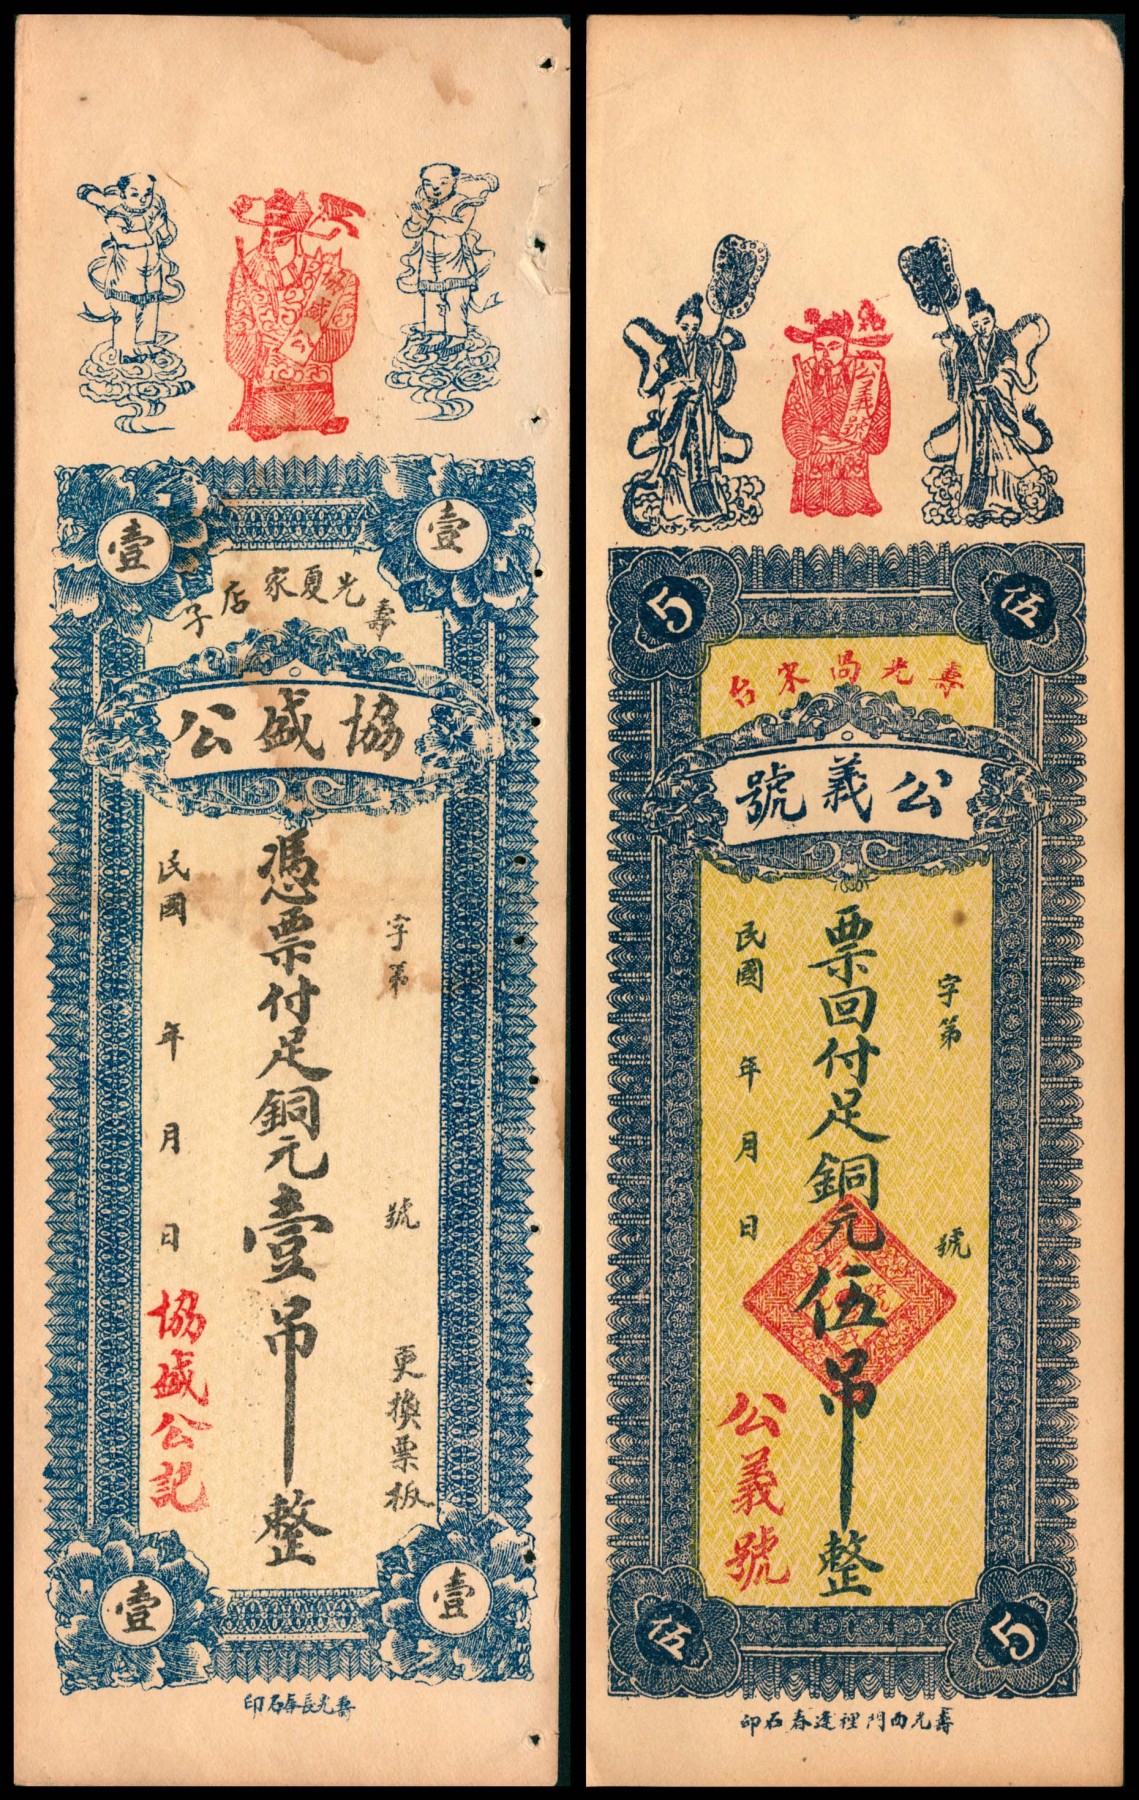 協盛公
壹
壹
壽光夏家店子
協盛公
字第
號
更換票板
憑票付足銅元壹吊整
民國
年
月
日
協盛公記
壹
壹
壽光長春石印
公義號
伍
5
壽光馮家台
公義號
字第
號
票回付足銅元伍吊整
民國
年
月
日
公義號
5
伍
壽光西門裡逢春石印